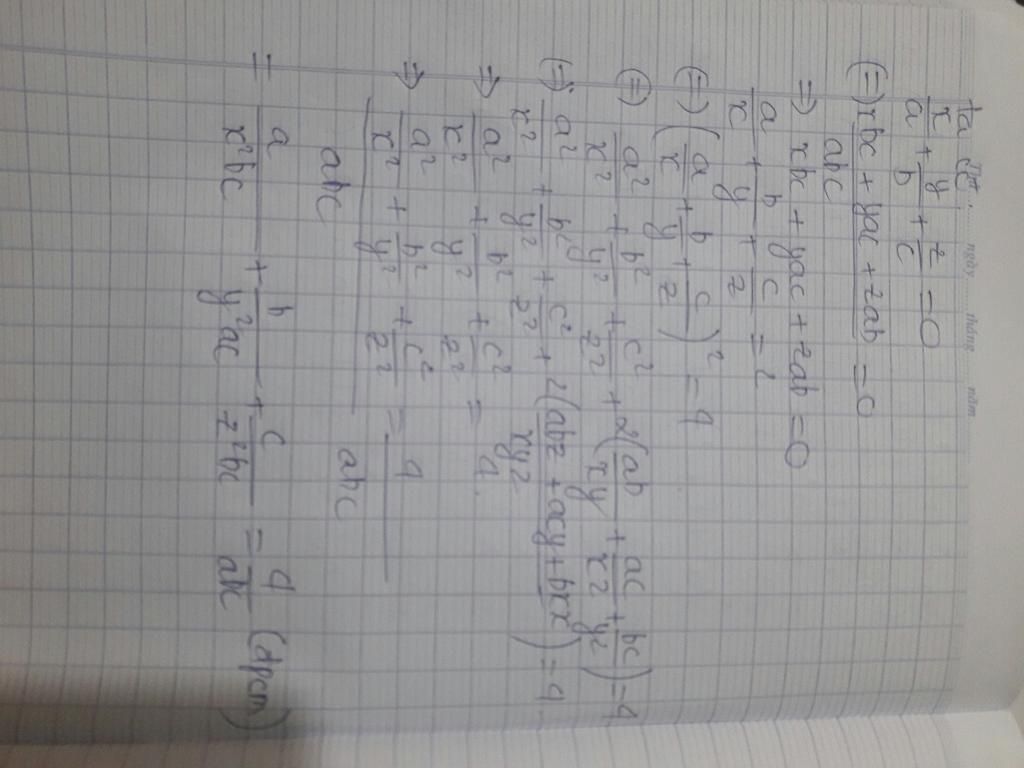 Thứ ........ ngày ........ tháng ........ năm
Ta có
x/a + y/b + z/c = 0
(=) (xbc + yac + zab)/abc = 0
=) xbc + yac + zab = 0
a/x + b/y + c/z = 2
(=) (a/x + b/y + c/z)² = 4
(=) a²/x² + b²/y² + c²/z² + 2(ab/xy + ac/xz + bc/yz) = 4
(=) a²/x² + b²/y² + c²/z² + 2(abz + acy + bcx / xyz) = 4
=) a²/x² + b²/y² + c²/z² = 4
=) (a²/x² + b²/y² + c²/z²)/abc = 4/abc
= a/x²bc + b/y²ac + c/z²bc = 4/abc (đpcm)